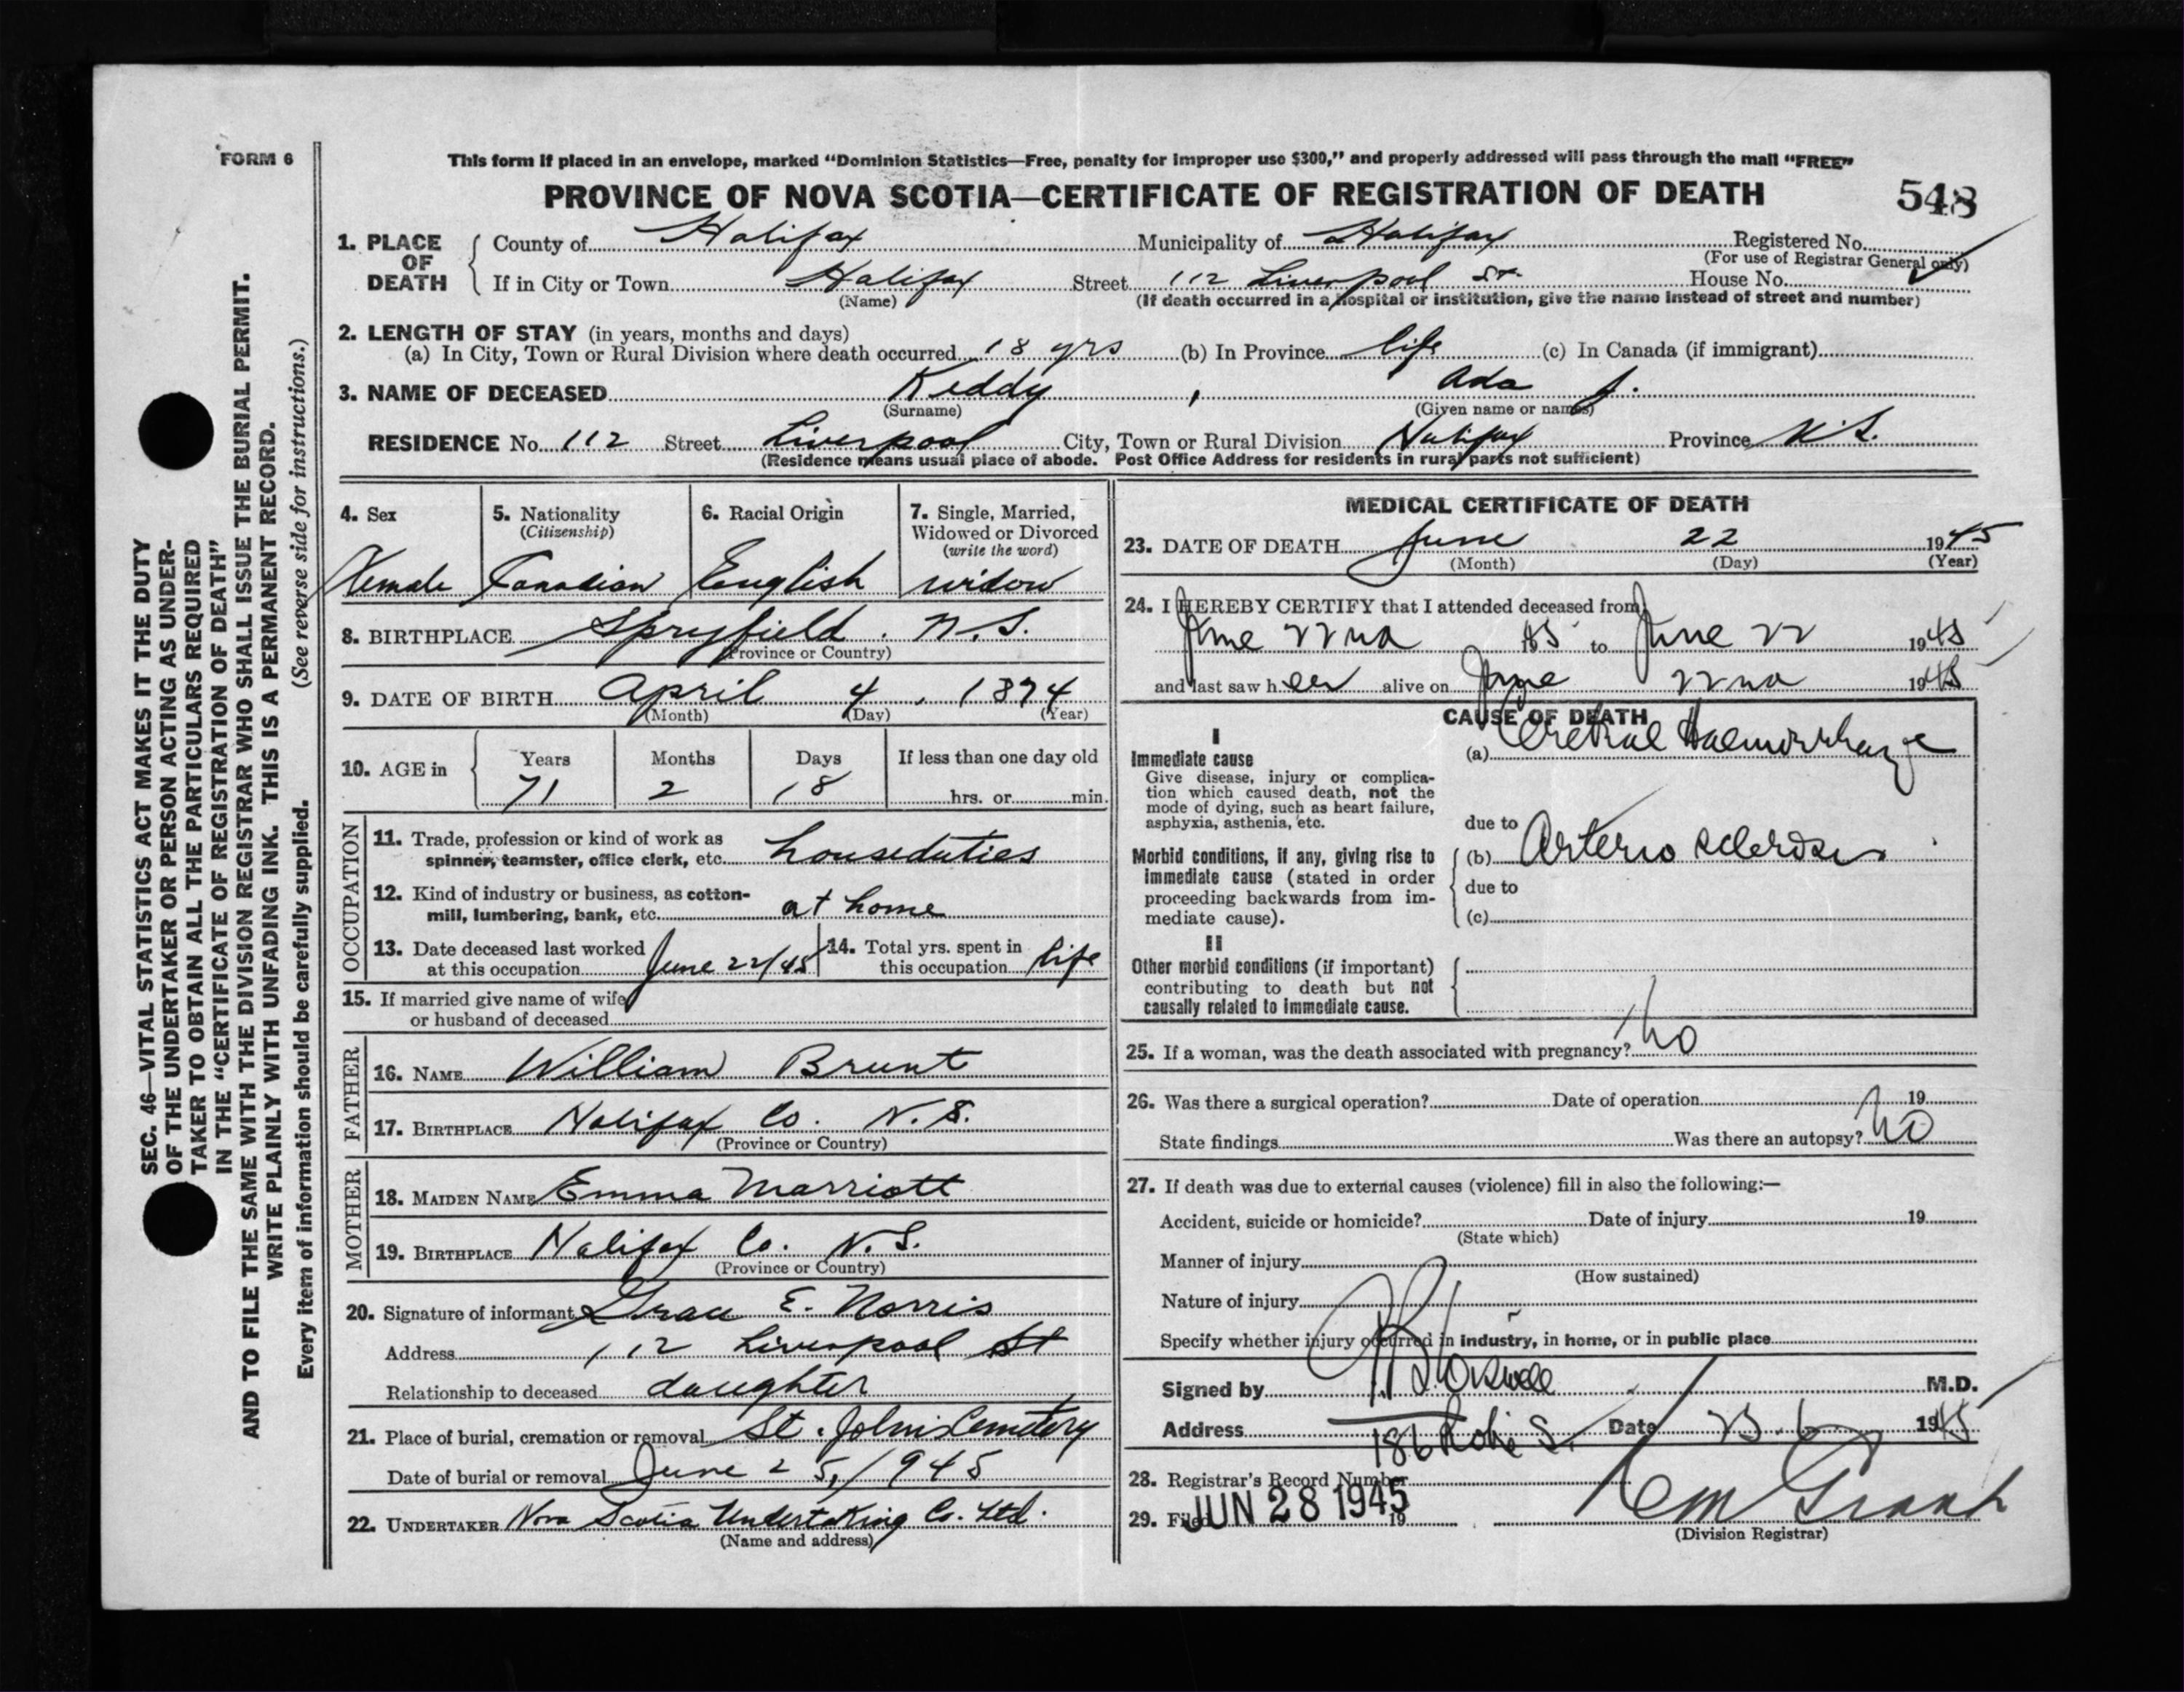 FORM 6
This form if placed in an envelope, marked “Dominion Statistics—Free, penalty for improper use $300,” and properly addressed will pass through the mail “FREE”
PROVINCE OF NOVA SCOTIA—CERTIFICATE OF REGISTRATION OF DEATH
548
1. PLACE OF DEATH
County of Halifax Municipality of Halifax Registered No.
(For use of Registrar General only)
If in City or Town Halifax Street 112 Liverpool St. House No.
(Name) (If death occurred in a hospital or institution, give the name instead of street and number)
2. LENGTH OF STAY (in years, months and days)
(a) In City, Town or Rural Division where death occurred 18 yrs (b) In Province life (c) In Canada (if immigrant)
3. NAME OF DECEASED Keddy, Ada J.
(Surname) (Given name or names)
RESIDENCE No. 112 Street Liverpool City, Town or Rural Division Halifax Province N.S.
(Residence means usual place of abode. Post Office Address for residents in rural parts not sufficient)
4. Sex 5. Nationality 6. Racial Origin 7. Single, Married,
(Citizenship) Widowed or Divorced
(write the word)
Female Canadian English widow
8. BIRTHPLACE Spryfield. N.S.
(Province or Country)
9. DATE OF BIRTH April 4, 1874
(Month) (Day) (Year)
10. AGE in Years Months Days If less than one day old
71 2 18 hrs. or min.
OCCUPATION
11. Trade, profession or kind of work as
spinner, teamster, office clerk, etc. houseduties
12. Kind of industry or business, as cotton-
mill, lumbering, bank, etc. at home
13. Date deceased last worked
at this occupation June 22/45
14. Total yrs. spent in
this occupation life
15. If married give name of wife
or husband of deceased
FATHER
16. NAME William Brunt
17. BIRTHPLACE Halifax Co. N.S.
(Province or Country)
MOTHER
18. MAIDEN NAME Emma Marriott
19. BIRTHPLACE Halifax Co. N.S.
(Province or Country)
20. Signature of informant Grace E. Norris
Address 112 Liverpool St
Relationship to deceased daughter
21. Place of burial, cremation or removal St. John's Cemetery
Date of burial or removal June 25, 1945
22. UNDERTAKER Nova Scotia Undertaking Co. Ltd.
(Name and address)
MEDICAL CERTIFICATE OF DEATH
23. DATE OF DEATH June 22 1945
(Month) (Day) (Year)
24. I HEREBY CERTIFY that I attended deceased from
June 22nd 45 to June 22 1945
and last saw her alive on June 22nd 1945
CAUSE OF DEATH
I
Immediate cause
(a) Cerebral Haemorrhage
Give disease, injury or complica-
tion which caused death, not the
mode of dying, such as heart failure,
asphyxia, asthenia, etc.
due to
Morbid conditions, if any, giving rise to
immediate cause (stated in order
proceeding backwards from im-
mediate cause).
(b) Arterio sclerosis
due to
(c)
II
Other morbid conditions (if important)
contributing to death but not
causally related to immediate cause.
25. If a woman, was the death associated with pregnancy? No
26. Was there a surgical operation? Date of operation 19
State findings Was there an autopsy? No
27. If death was due to external causes (violence) fill in also the following:—
Accident, suicide or homicide? Date of injury 19
(State which)
Manner of injury
(How sustained)
Nature of injury
Specify whether injury occurred in industry, in home, or in public place
Signed by M.D.
Address 186 Robie St. Date 1945
28. Registrar's Record Number
29. Filed JUN 28 1945 19
(Division Registrar)
SEC. 46—VITAL STATISTICS ACT MAKES IT THE DUTY
OF THE UNDERTAKER OR PERSON ACTING AS UNDER-
TAKER TO OBTAIN ALL THE PARTICULARS REQUIRED
IN THE “CERTIFICATE OF REGISTRATION OF DEATH”
AND TO FILE THE SAME WITH THE DIVISION REGISTRAR WHO SHALL ISSUE THE BURIAL PERMIT.
WRITE PLAINLY WITH UNFADING INK. THIS IS A PERMANENT RECORD.
Every item of information should be carefully supplied. (See reverse side for instructions.)